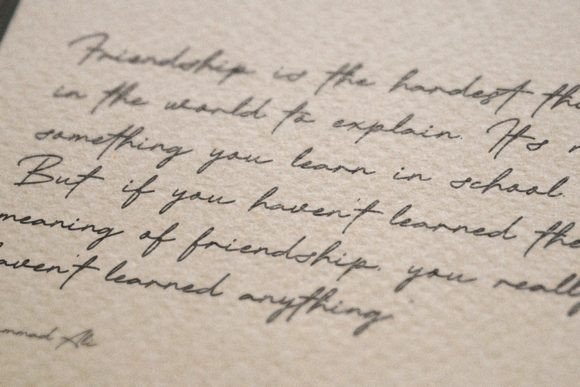 Friendship is the hardest th
in the world to explain. It's n
something you learn in school.
But if you haven't learned the
meaning of friendship, you really
aven't learned anything.
ammad Ali